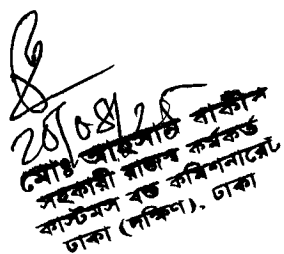 20/08/25
মোঃ আহসান বাকীর
সহকারী রাজস্ব কর্মকর্তা
কাস্টমস বন্ড কমিশনারেট
ঢাকা (দক্ষিণ), ঢাকা